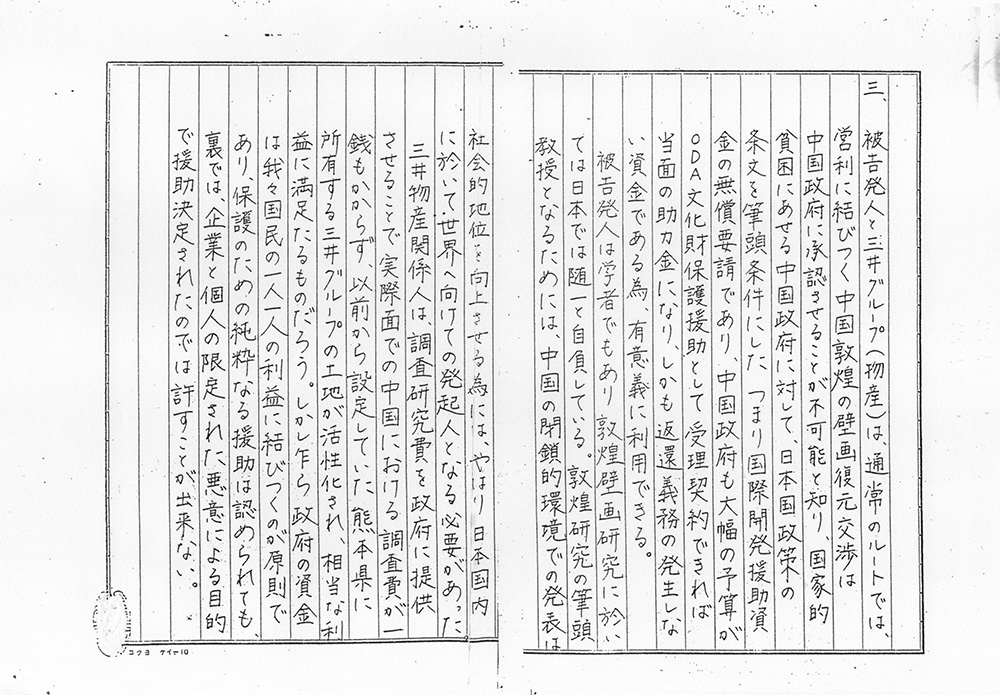 三、
被告発人と三井グループ(物産)は、通常のルートでは、
営利に結びつく中国敦煌の壁画復元交渉は
中国政府に承認させることが不可能と知り、国家的
貧困にあせる中国政府に対して、日本国政策の
条文を筆頭条件にした つまり国際開発援助資
金の無償要請であり、中国政府も大幅の予算が
ODA文化財保護援助として受理契約できれば
当面の助力金になり、しかも返還義務の発生しな
い資金である為、有意義に利用できる。
被告発人は学者でもあり 敦煌壁画研究に於い
ては日本では随一と自負している。敦煌研究の筆頭
教授となるためには、中国の閉鎖的環境での発表は
社会的地位を向上させる為には、やはり日本国内
に於いて世界へ向けての発起人となる必要があった
三井物産関係人は、調査研究費を政府に提供
させることで実際面での中国における調査費が一
銭もかからず、以前から設定していた熊本県に
所有する三井グループの土地が活性化され、相当な利
益に満足たるものだろう。しかし乍ら政府の資金
は我々国民の一人一人の利益に結びつくのが原則で
あり、保護のための純粋なる援助は認められても、
裏では、企業と個人の限定された悪意による目的
で援助決定されたのでは許すことが出来ない。
コクヨ ケイー10